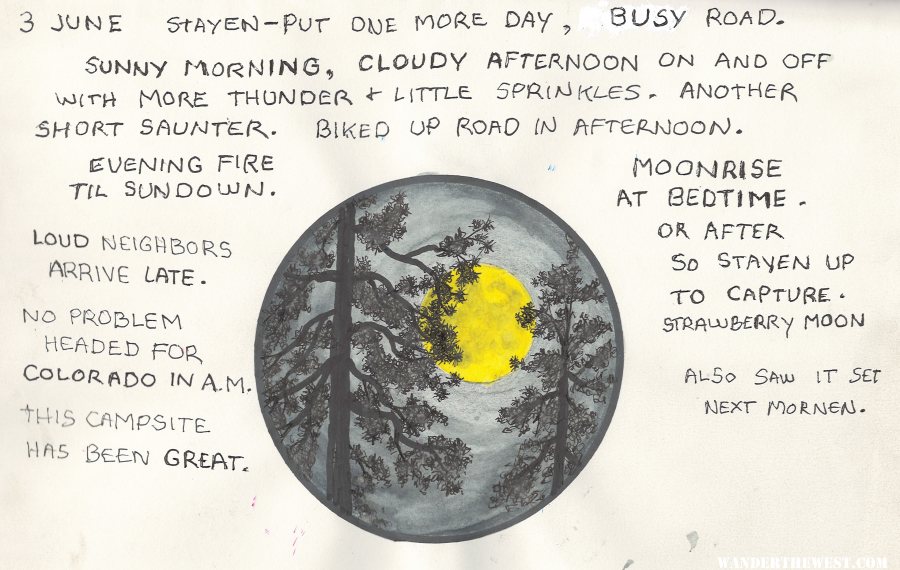 3 JUNE STAYEN-PUT ONE MORE DAY, BUSY ROAD.
SUNNY MORNING, CLOUDY AFTERNOON ON AND OFF
WITH MORE THUNDER + LITTLE SPRINKLES. ANOTHER
SHORT SAUNTER. BIKED UP ROAD IN AFTERNOON.
EVENING FIRE
TIL SUNDOWN.
LOUD NEIGHBORS
ARRIVE LATE.
NO PROBLEM
HEADED FOR
COLORADO IN A.M.
THIS CAMPSITE
HAS BEEN GREAT.
MOONRISE
AT BEDTIME.
OR AFTER
SO STAYEN UP
TO CAPTURE.
STRAWBERRY MOON
ALSO SAW IT SET
NEXT MORNEN.
WANDERTHEWEST.COM